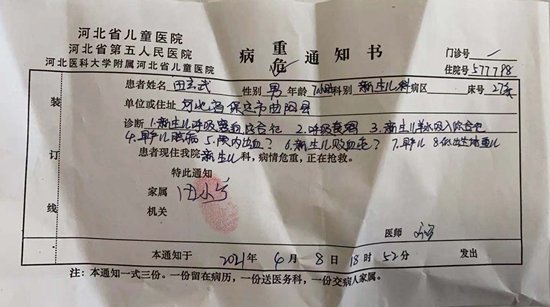 河北省儿童医院
河北省第五人民医院
河北医科大学附属河北省儿童医院
病重危通知书
门诊号 /
住院号 577798
患者姓名 田 武 性别 男 年龄 科别 新生儿科病区 床号 27床
单位或住址 河北省保定市曲阳县
诊断 1.新生儿呼吸窘迫综合征 2.呼吸衰竭 3.新生儿羊水吸入综合征
4.早产儿脑病 5.颅内出血? 6.新生儿败血症? 7.早产儿 8.低出生体重儿
患者现住我院新生儿科,病情危重,正在抢救。
特此通知
家属
机关
医师
本通知于 2021年 6月 8日 18时 52分 发出
注:本通知一式三份。一份留在病历,一份送医务科,一份交病人家属。
装
订
线